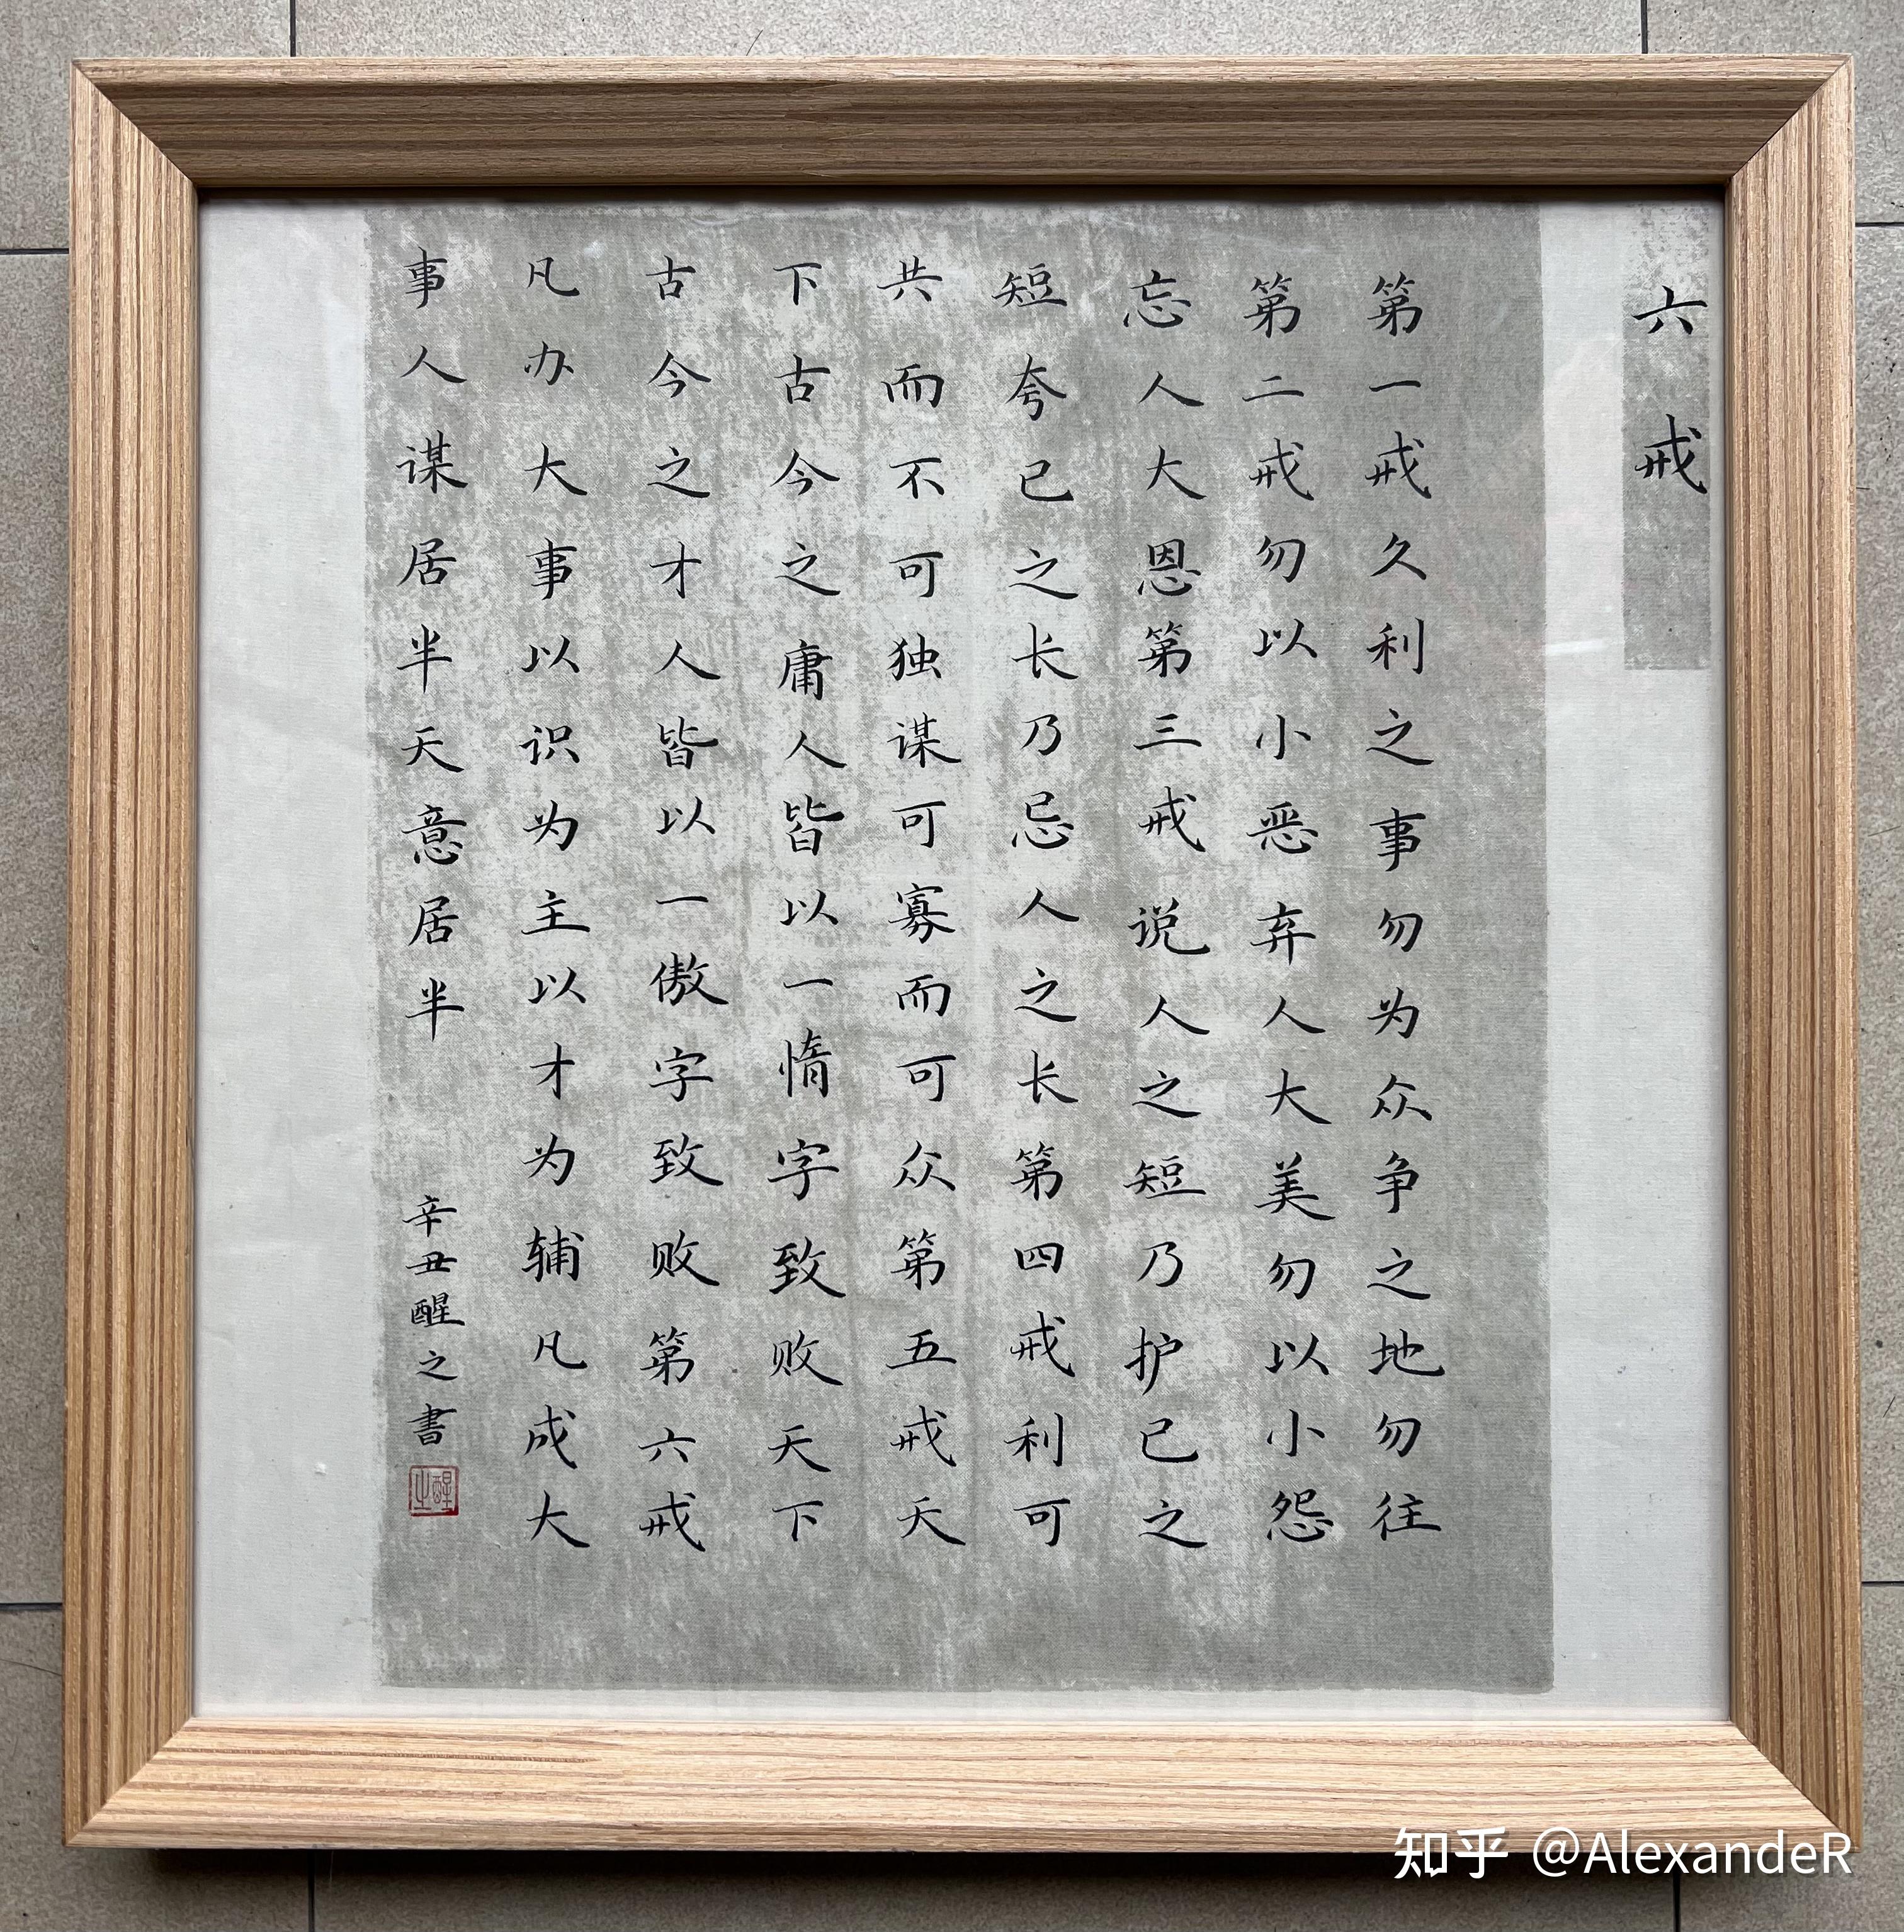 六戒
第一戒久利之事勿为众争之地勿往
第二戒勿以小恶弃人大美勿以小怨
忘人大恩第三戒说人之短乃护己之
短夸己之长乃忌人之长第四戒利可
共而不可独谋可寡而可众第五戒天
下古今之庸人皆以一惰字致败天下
古今之才人皆以一傲字致败第六戒
凡办大事以识为主以才为辅凡成大
事人谋居半天意居半
辛丑醒之書
醒之
知乎 @AlexandeR